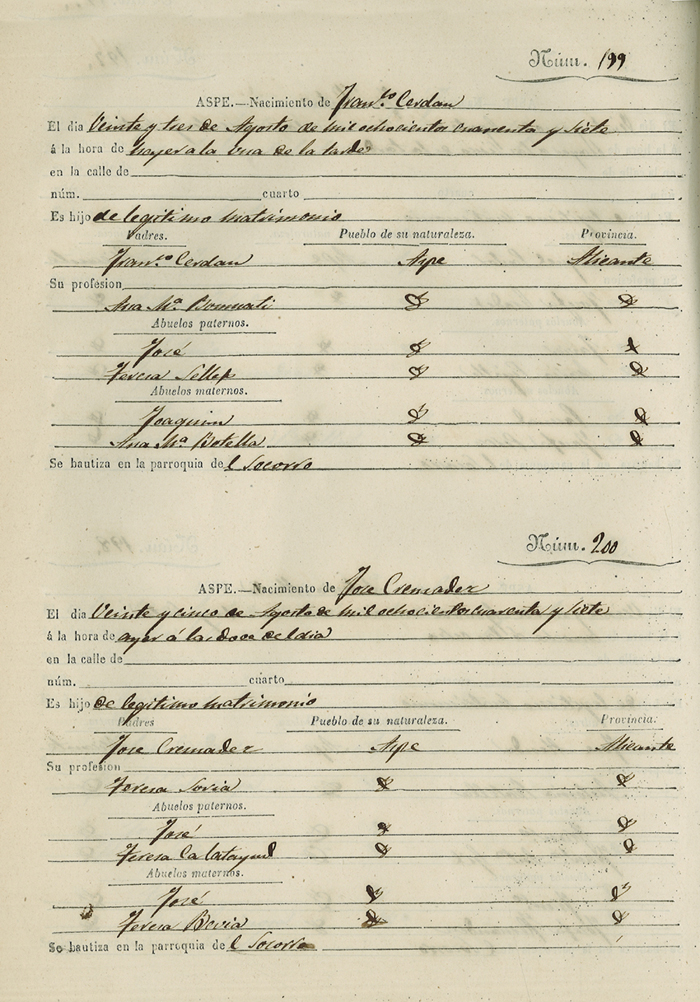 Núm. 199
ASPE.—Nacimiento de Franco. Cerdan
El dia Veinte y tres de Agosto de mil ochocientos cuarenta y siete
á la hora de hoy a la una de la tarde
en la calle de
núm. cuarto
Es hijo de legitimo matrimonio
Padres. Pueblo de su naturaleza. Provincia.
Franco. Cerdan Aspe Alicante
Su profesion
Ana Ma. Bonmati
Abuelos paternos.
José
Teresa Sellep
Abuelos maternos.
Joaquin
Ana Ma. Botella
Se bautiza en la parroquia del Socorro
Núm. 200
ASPE.—Nacimiento de Jose Cremadez
El dia Veinte y cinco de Agosto de mil ochocientos cuarenta y siete
á la hora de ayer á las doce del dia
en la calle de
núm. cuarto
Es hijo de legitimo matrimonio
Padres Pueblo de su naturaleza. Provincia.
Jose Cremadez Aspe Alicante
Su profesion
Teresa Soria
Abuelos paternos.
José
Teresa Calatayud
Abuelos maternos.
José
Teresa Bevia
Se bautiza en la parroquia del Socorro